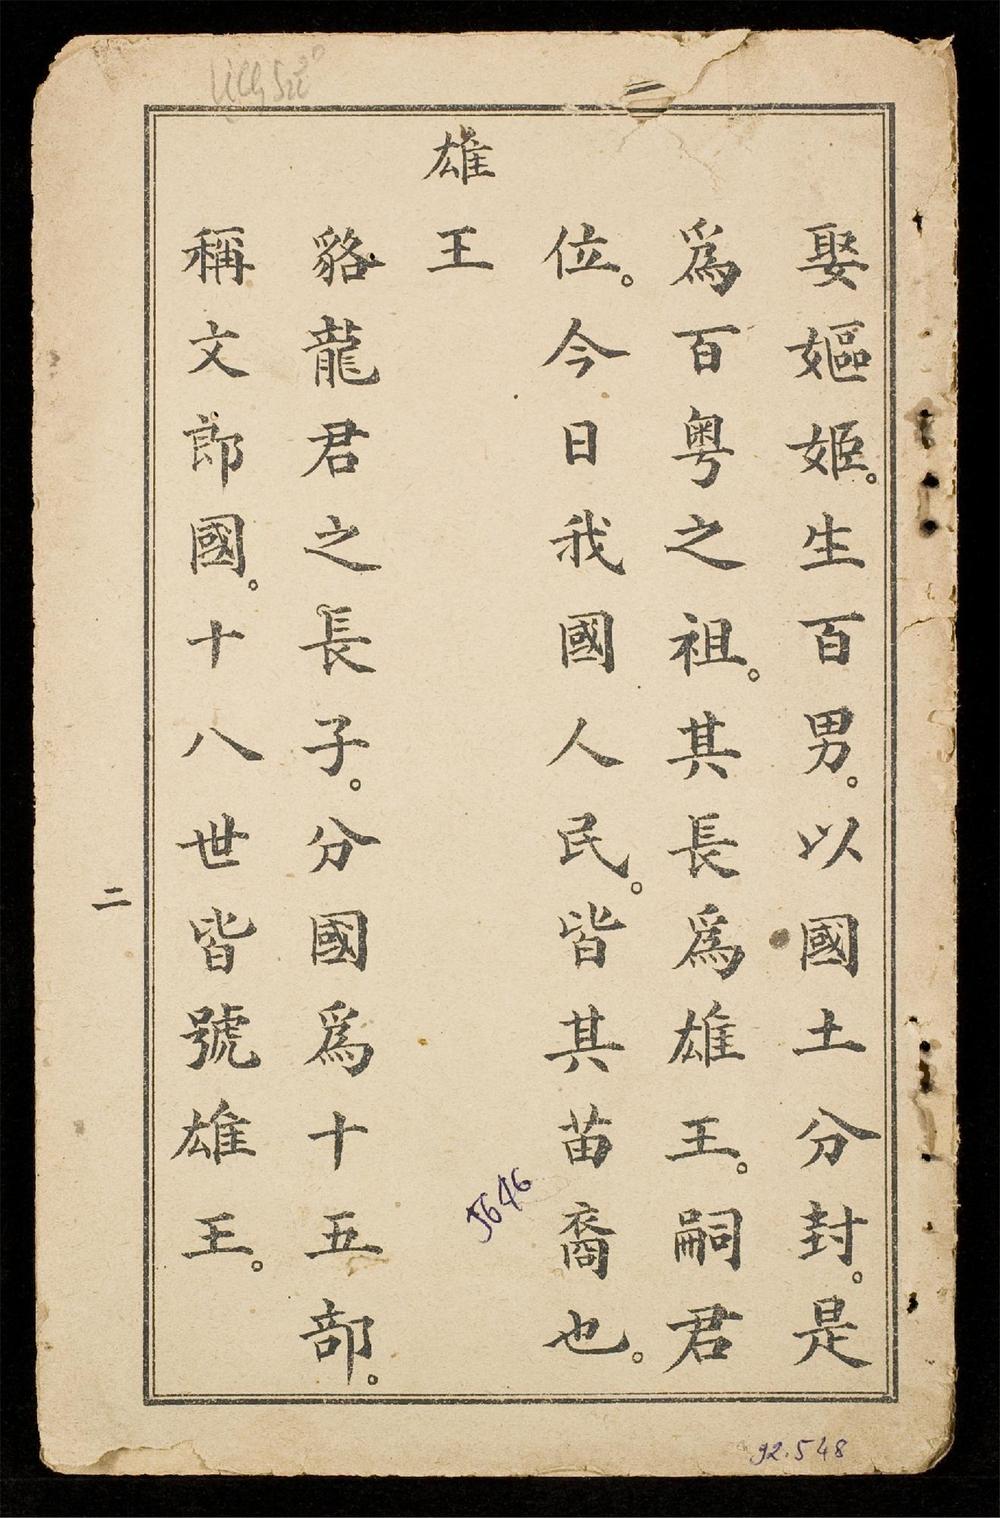 二
娶嫗姬。生百男。以國土分封。是
爲百粤之祖。其長爲雄王。嗣君
位。今日我國人民。皆其苗裔也。
雄王
貉龍君之長子。分國爲十五部。
稱文郎國。十八世皆號雄王。
二
5646
92.548